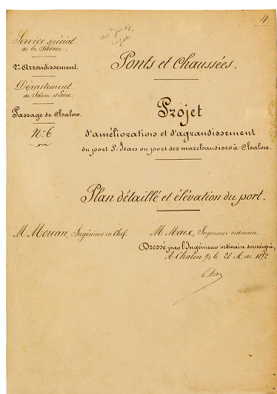 4
Service spécial
de la Saône.
2e Arrondissement.
Département
de Saône et Loire.
Passage de Chalon.
No. 6
Ponts et Chaussées.
Projet
d'améliorations et d'agrandissement
du port St Jean ou port des marchandises à Chalon.
Plan détaillé et élévation du port.
M. Moreau, Ingénieur en Chef.
M. Ingénieur ordinaire.
Dressé par l'Ingénieur ordinaire soussigné,
A Chalon s/s. le 28